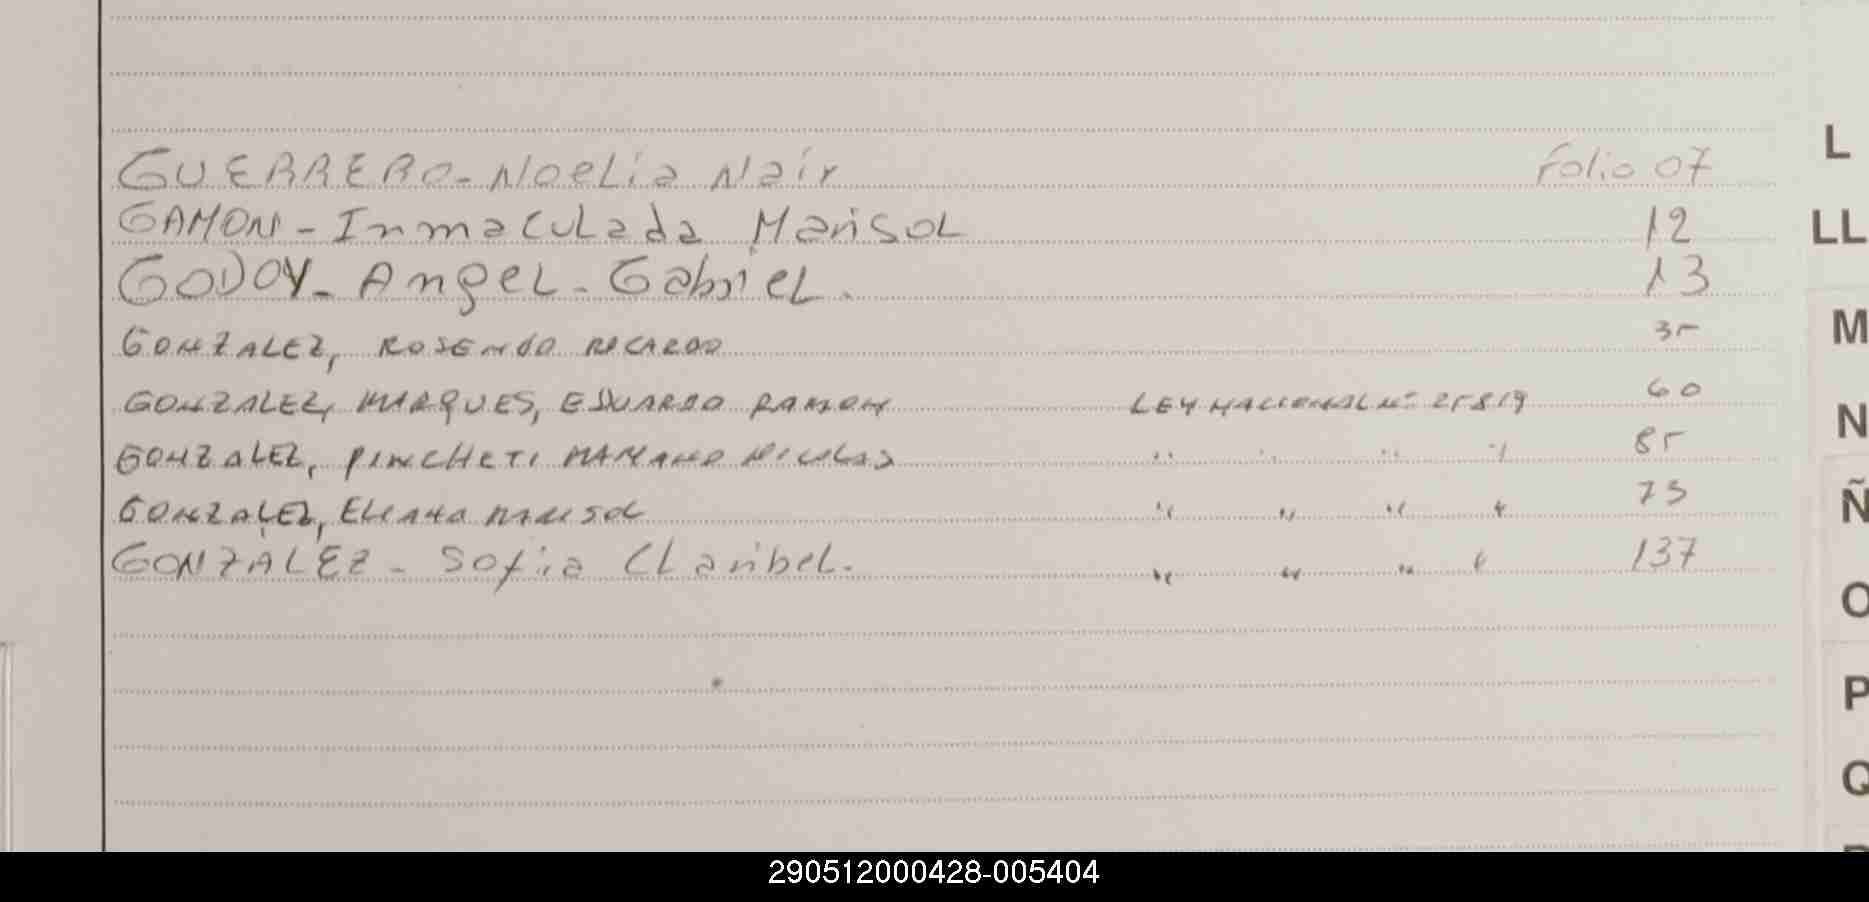 GUERRERO - Noelia Nair Folio 07
GAMON - Inmaculada Marisol 12
GODOY - Angel - Gabriel. 13
GONZALEZ, ROSENDO RICARDO 35
GONZALEZ, MARQUES, EDUARDO RAMON LEY NACIONAL N° 25819 60
GONZALEZ, PINCHETI MARIANO NICOLAS " " " " 85
GONZALEZ, ELIANA MARISOL " " " " 73
GONZALEZ - Sofia Claribel. " " " " 137
L
LL
M
N
Ñ
O
P
Q
290512000428-005404